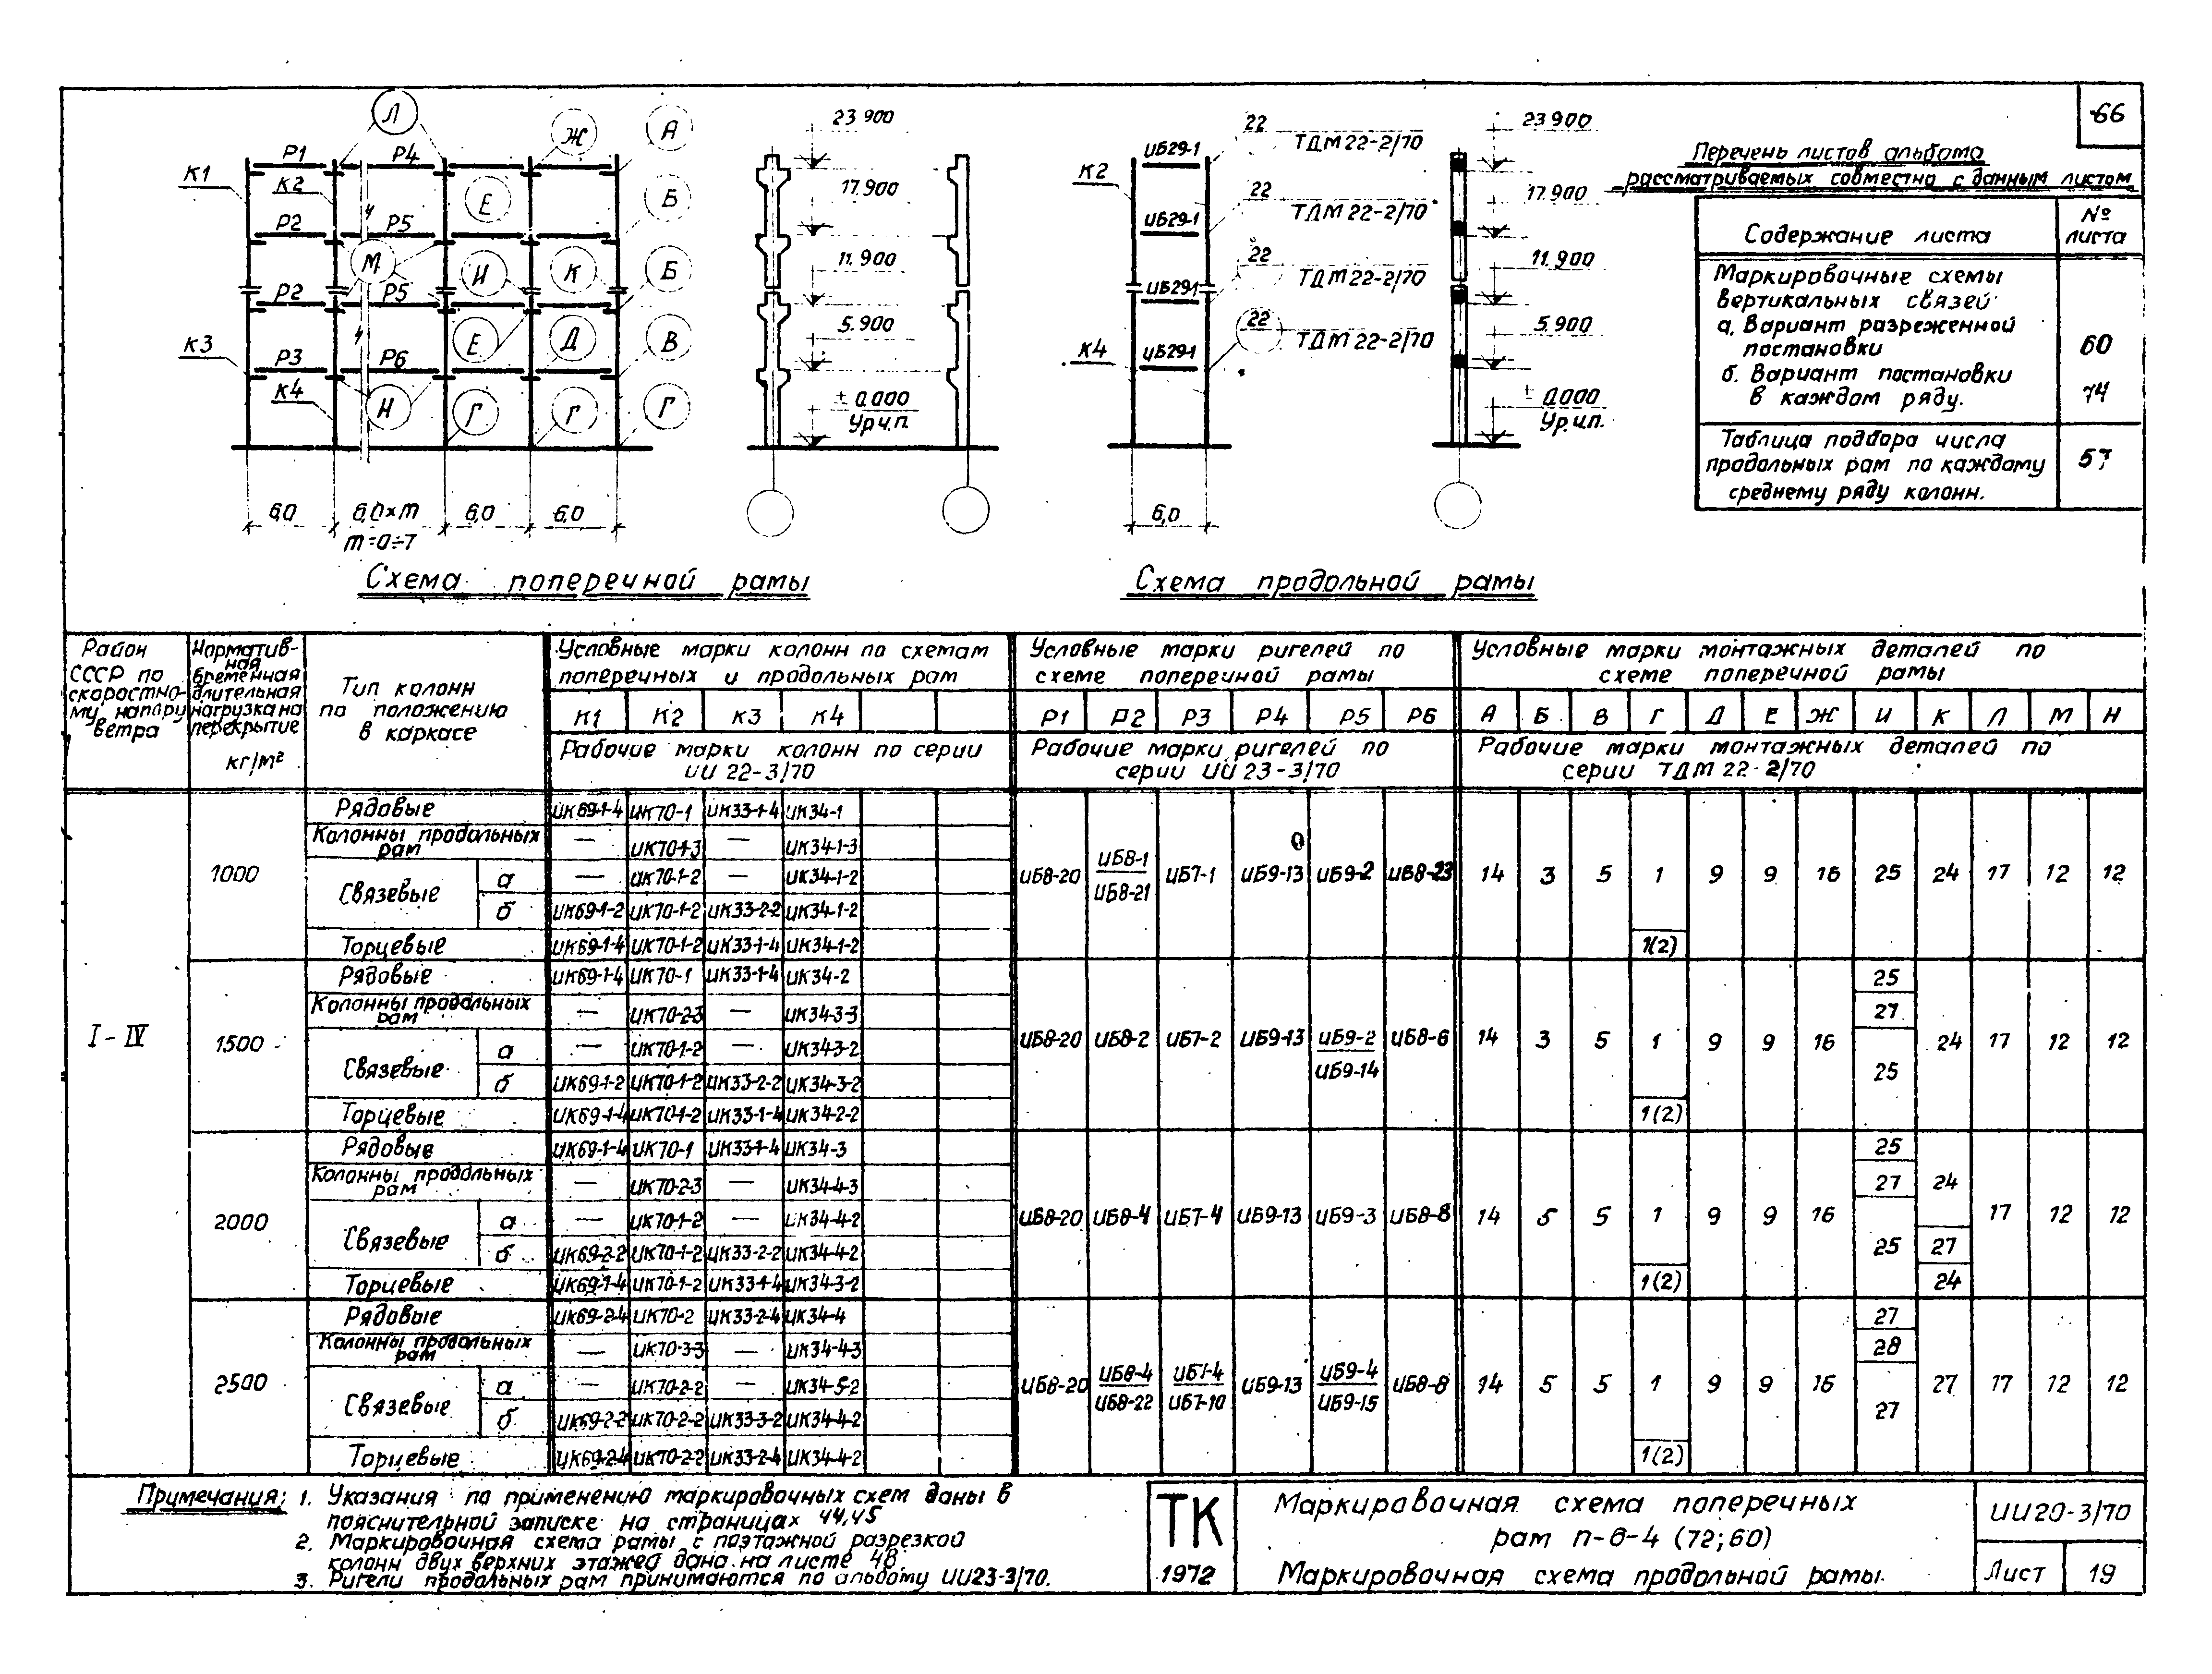 66
Л
Ж
А
Р1
Р4
К1
К2
Е
Б
Р2
Р5
М
И
К
Б
Р2
Р5
К3
Е
Д
В
Р3
Р6
К4
Н
Г
Г
Г
6,0
6,0×m
6,0
6,0
m=0÷7
23 900
17.900
11.900
5.900
± 0.000
Ур.ч.п.
Схема поперечной рамы
К2
ИБ29-1
22
ТДМ 22-2/70
ИБ29-1
22
ТДМ 22-2/70
ИБ29-1
22
ТДМ 22-2/70
К4
ИБ29-1
22
ТДМ 22-2/70
6,0
23 900
17.900
11.900
5.900
± 0.000
Ур.ч.п.
Схема продольной рамы
Перечень листов альбома
рассматриваемых совместно с данным листом
Содержание листа
№ листа
Маркировочные схемы
вертикальных связей
а. Вариант разреженной
постановки
60
б. Вариант постановки
в каждом ряду.
74
Таблица подбора числа
продольных рам по каждому
среднему ряду колонн.
57
Район СССР по скоростно-му напору ветра
Норматив-ная временная длительная нагрузка на перекрытие кг/м²
Тип колонн по положению в каркасе
Условные марки колонн по схемам поперечных и продольных рам
Условные марки ригелей по схеме поперечной рамы
Условные марки монтажных деталей по схеме поперечной рамы
К1 К2 К3 К4
Р1 Р2 Р3 Р4 Р5 Р6
А Б В Г Д Е Ж И К Л М Н
Рабочие марки колонн по серии ИИ 22-3/70
Рабочие марки ригелей по серии ИИ 23-3/70
Рабочие марки монтажных деталей по серии ТДМ 22-2/70
I - IV
1000
Рядовые ИК69-1-4 ИК70-1 ИК33-1-4 ИК34-1
Колонны продольных рам — ИК70-1-3 — ИК34-1-3
Связевые а — ИК70-1-2 — ИК34-1-2
б ИК69-1-2 ИК70-1-2 ИК33-2-2 ИК34-1-2
Торцевые ИК69-1-4 ИК70-1-2 ИК33-1-4 ИК34-1-2
ИБ8-20 ИБ8-1 ИБ8-21 ИБ7-1 ИБ9-13 ИБ9-2 ИБ8-23
14 3 5 1 1(2) 9 9 16 25 24 17 12 12
1500
Рядовые ИК69-1-4 ИК70-1 ИК33-1-4 ИК34-2
Колонны продольных рам — ИК70-2-3 — ИК34-3-3
Связевые а — ИК70-1-2 — ИК34-3-2
б ИК69-1-2 ИК70-1-2 ИК33-2-2 ИК34-3-2
Торцевые ИК69-1-4 ИК70-1-2 ИК33-1-4 ИК34-2-2
ИБ8-20 ИБ8-2 ИБ7-2 ИБ9-13 ИБ9-2 ИБ9-14 ИБ8-6
14 3 5 1 1(2) 9 9 16 25 27 25 24 17 12 12
2000
Рядовые ИК69-1-4 ИК70-1 ИК33-1-4 ИК34-3
Колонны продольных рам — ИК70-2-3 — ИК34-4-3
Связевые а — ИК70-1-2 — ИК34-4-2
б ИК69-2-2 ИК70-1-2 ИК33-2-2 ИК34-4-2
Торцевые ИК69-1-4 ИК70-1-2 ИК33-1-4 ИК34-3-2
ИБ8-20 ИБ8-4 ИБ7-4 ИБ9-13 ИБ9-3 ИБ8-8
14 5 5 1 1(2) 9 9 16 25 27 25 24 27 24 17 12 12
2500
Рядовые ИК69-2-4 ИК70-2 ИК33-2-4 ИК34-4
Колонны продольных рам — ИК70-3-3 — ИК34-4-3
Связевые а — ИК70-2-2 — ИК34-5-2
б ИК69-2-2 ИК70-2-2 ИК33-3-2 ИК34-4-2
Торцевые ИК69-2-4 ИК70-2-2 ИК33-2-4 ИК34-4-2
ИБ8-20 ИБ8-4 ИБ8-22 ИБ7-4 ИБ7-10 ИБ9-13 ИБ9-4 ИБ9-15 ИБ8-8
14 5 5 1 1(2) 9 9 16 27 28 27 27 17 12 12
Примечания: 1. Указания по применению маркировочных схем даны в
пояснительной записке на страницах 44,45
2. Маркировочная схема рамы с поэтажной разрезкой
колонн двух верхних этажей дана на листе 48.
3. Ригели продольных рам принимаются по альбому ИИ23-3/70.
ТК
1972
Маркировочная схема поперечных
рам п-6-4 (72;60)
Маркировочная схема продольной рамы.
ИИ20-3/70
Лист 19